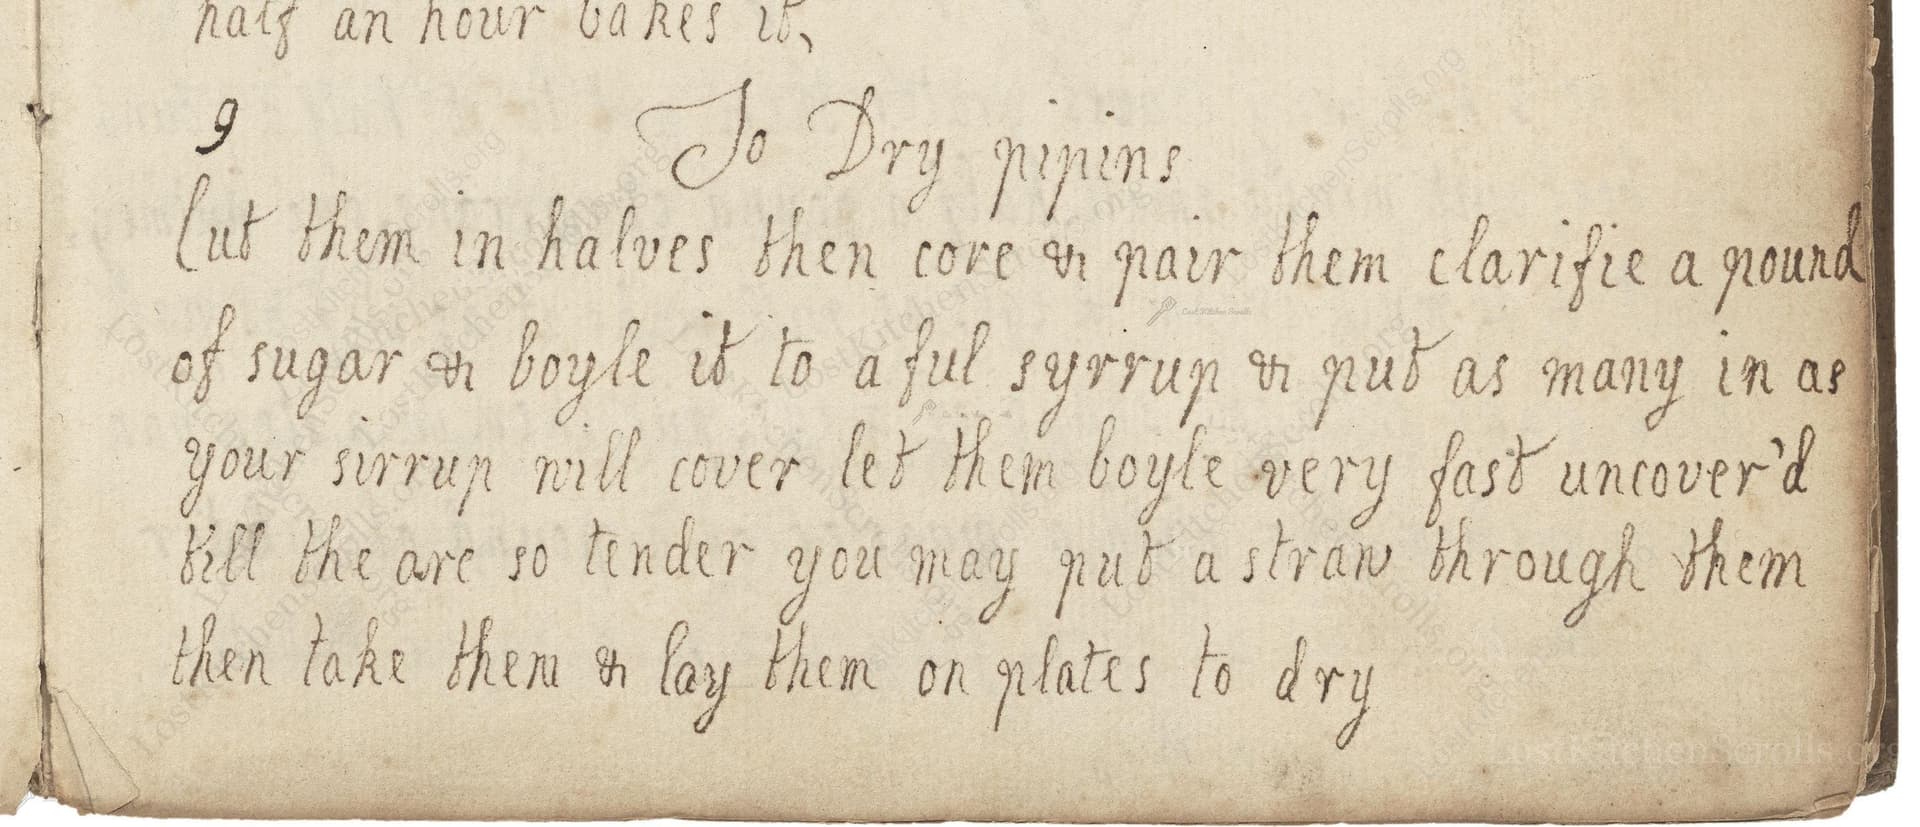 half an hour bakes it,
9 To Dry pipins
Cut them in halves then core & pair them clarifie a pound
of sugar & boyle it to a ful syrrup & put as many in as
your sirrup will cover let them boyle very fast uncover'd
till the are so tender you may put a straw through them
then take them & lay them on plates to dry
LostKitchenScrolls.org